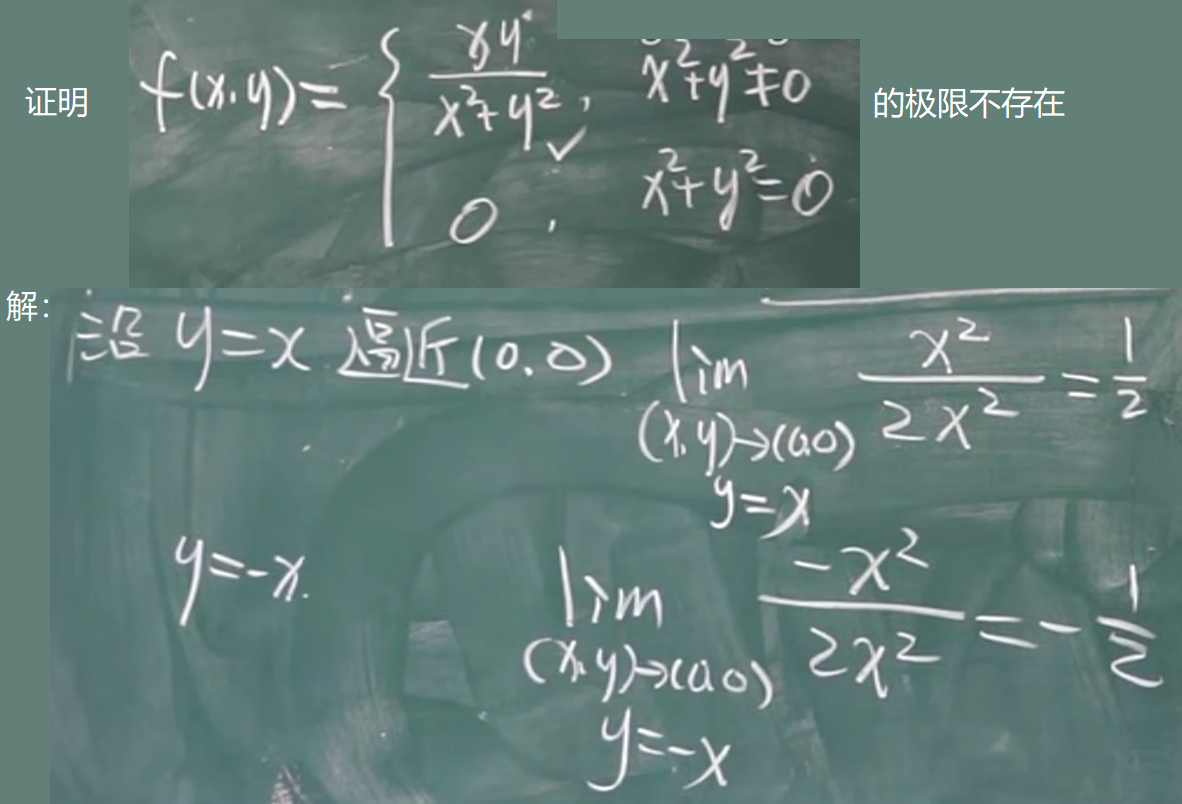 证明 f(x,y)= { xy / (x²+y²), x²+y²≠0 的极限不存在
0, x²+y²=0
解：
沿 y=x 逼近(0,0) lim (x,y)→(0,0) y=x x² / 2x² = 1/2
y=-x. lim (x,y)→(0,0) y=-x -x² / 2x² = -1/2